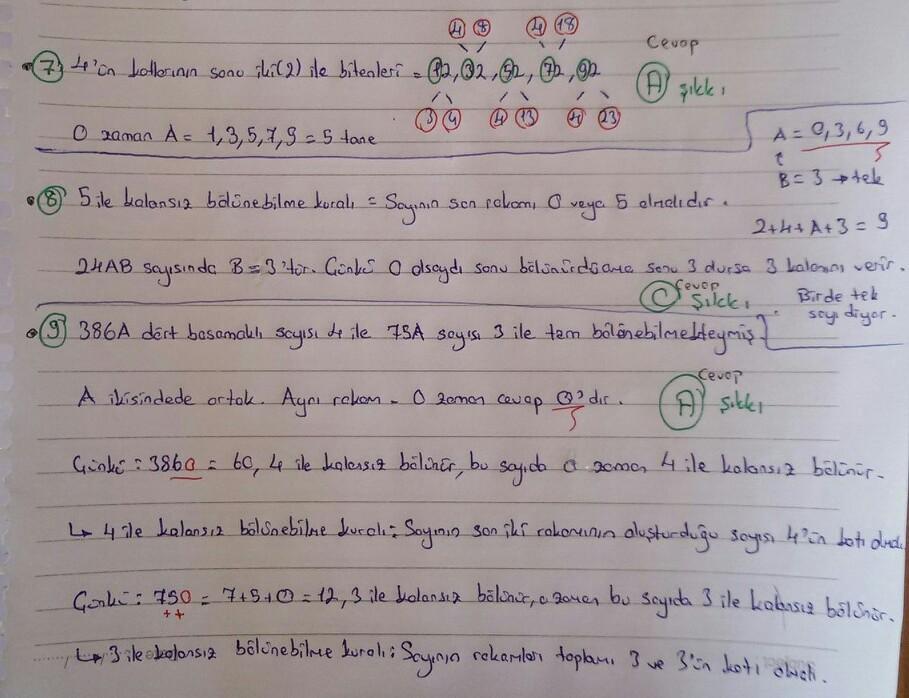 4 8 4 18
7 4'ün katlarının sonu iki(2) ile bitenleri = 12, 32, 52, 72, 92
Cevap
A şıkkı
3 4 4 13 4 23
O zaman A = 1,3,5,7,9 = 5 tane
A = 0,3,6,9
B = 3 → tek
8 5 ile kalansız bölünebilme kuralı = Sayının son rakamı 0 veya 5 olmalıdır.
2+4+A+3 = 9
24AB sayısında B = 3'tür. Çünkü 0 olsaydı sonu bölünürdü ama sonu 3 dursa 3 kalanını verir.
Cevap
C Şıkkı
Birde tek
sayı diyor.
9 386A dört basamaklı sayısı 4 ile 75A sayısı 3 ile tam bölünebilmekteymiş
A ikisindede ortak. Aynı rakam - O zaman cevap 0'dır.
Cevap
A şıkkı
Çünkü : 3860 = 60, 4 ile kalansız bölünür, bu sayıda o zaman 4 ile kalansız bölünür.
↳ 4 ile kalansız bölünebilme kuralı : Sayının son iki rakamının oluşturduğu sayısı 4'ün katı olmalı
Çünkü : 750 = 7+5+0 = 12, 3 ile kalansız bölünür, o zaman bu sayıda 3 ile kalansız bölünür.
++
↳ 3 ile kalansız bölünebilme kuralı : Sayının rakamları toplamı 3 ve 3'ün katı olmalı.